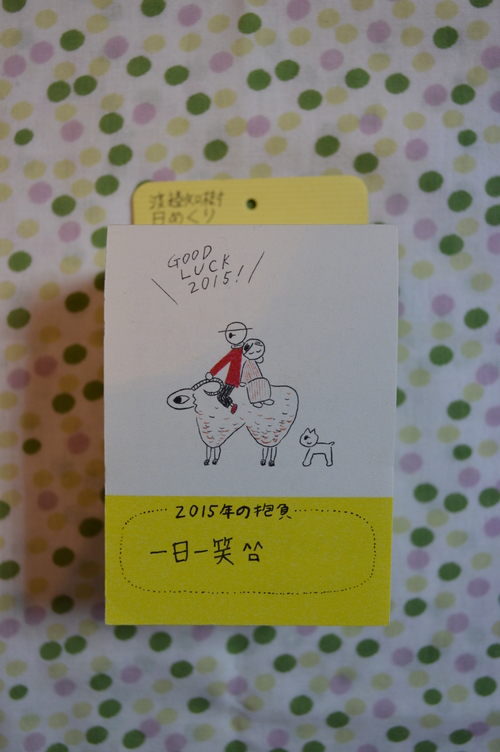 日めくり
GOOD
LUCK
2015!
2015年の抱負
一日一笑 ^^